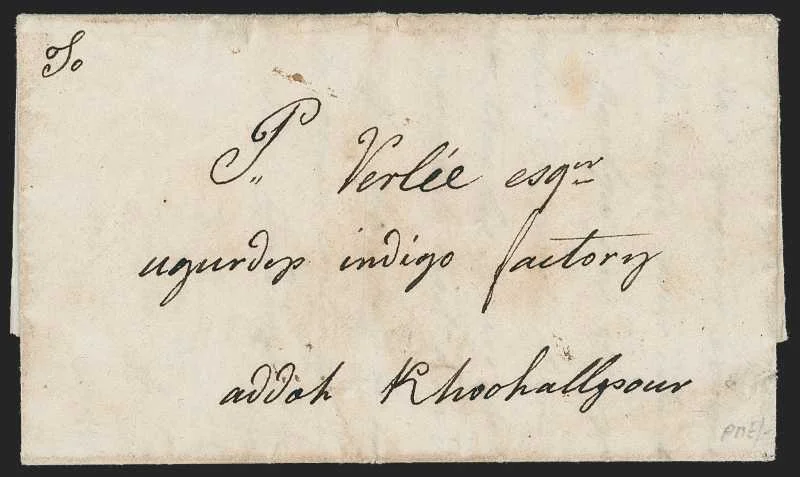 To
P,, Verlée esqer
ugurdyp indigo factory
addoh Khoohallysour